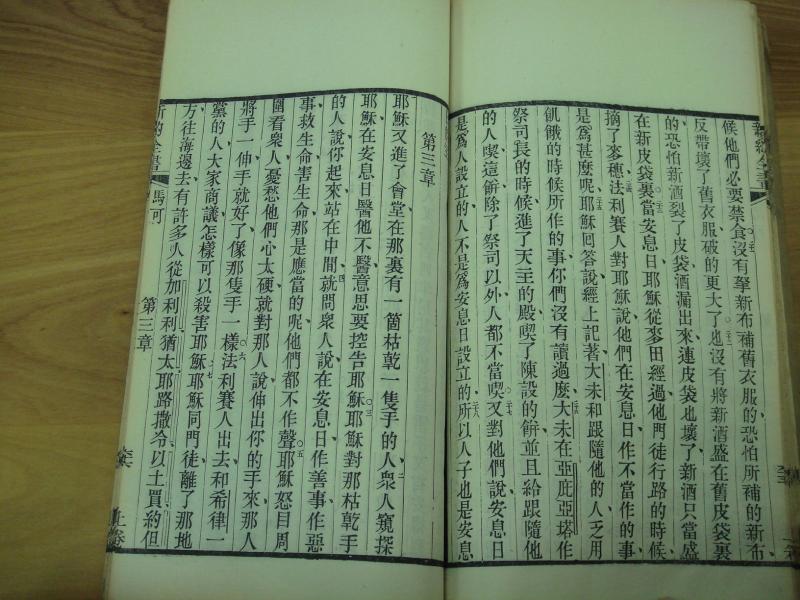 新約全書
候他們必要禁食沒有拏新布補舊衣服的恐怕所補的新布
反帶壞了舊衣服破的更大了也沒有將新酒盛在舊皮袋裏
的恐怕新酒裂了皮袋酒漏出來連皮袋也壞了新酒只當盛
在新皮袋裏當安息日耶穌從麥田經過他門徒行路的時候
摘了麥穗法利賽人對耶穌說他們在安息日作不當作的事
是爲甚麼呢耶穌回答說經上記著大未和跟隨他的人乏用
飢餓的時候所作的事你們沒有讀過麼大未在亞庇亞塔作
祭司長的時候進了天主的殿喫了陳設的餅並且給跟隨他
的人喫這餅除了祭司以外人都不當喫又對他們說安息日
是爲人設立的人不是爲安息日設立的所以人子也是安息
第三章
耶穌又進了會堂在那裏有一箇枯乾一隻手的人衆人窺探
耶穌在安息日醫他不醫意思要控告耶穌耶穌對那枯乾手
的人說你起來站在中間就問衆人說在安息日作善事作惡
事救生命害生命那是應當的呢他們都不作聲耶穌怒目周
圍看衆人憂愁他們心太硬就對那人說伸出你的手來那人
將手一伸手就好了像那隻手一樣法利賽人出去和希律一
黨的人大家商議怎樣可以殺害耶穌耶穌同門徒離了那地
方往海邊去有許多人從加利利猶太耶路撒冷以土買約但
新約全書 馬可 第三章